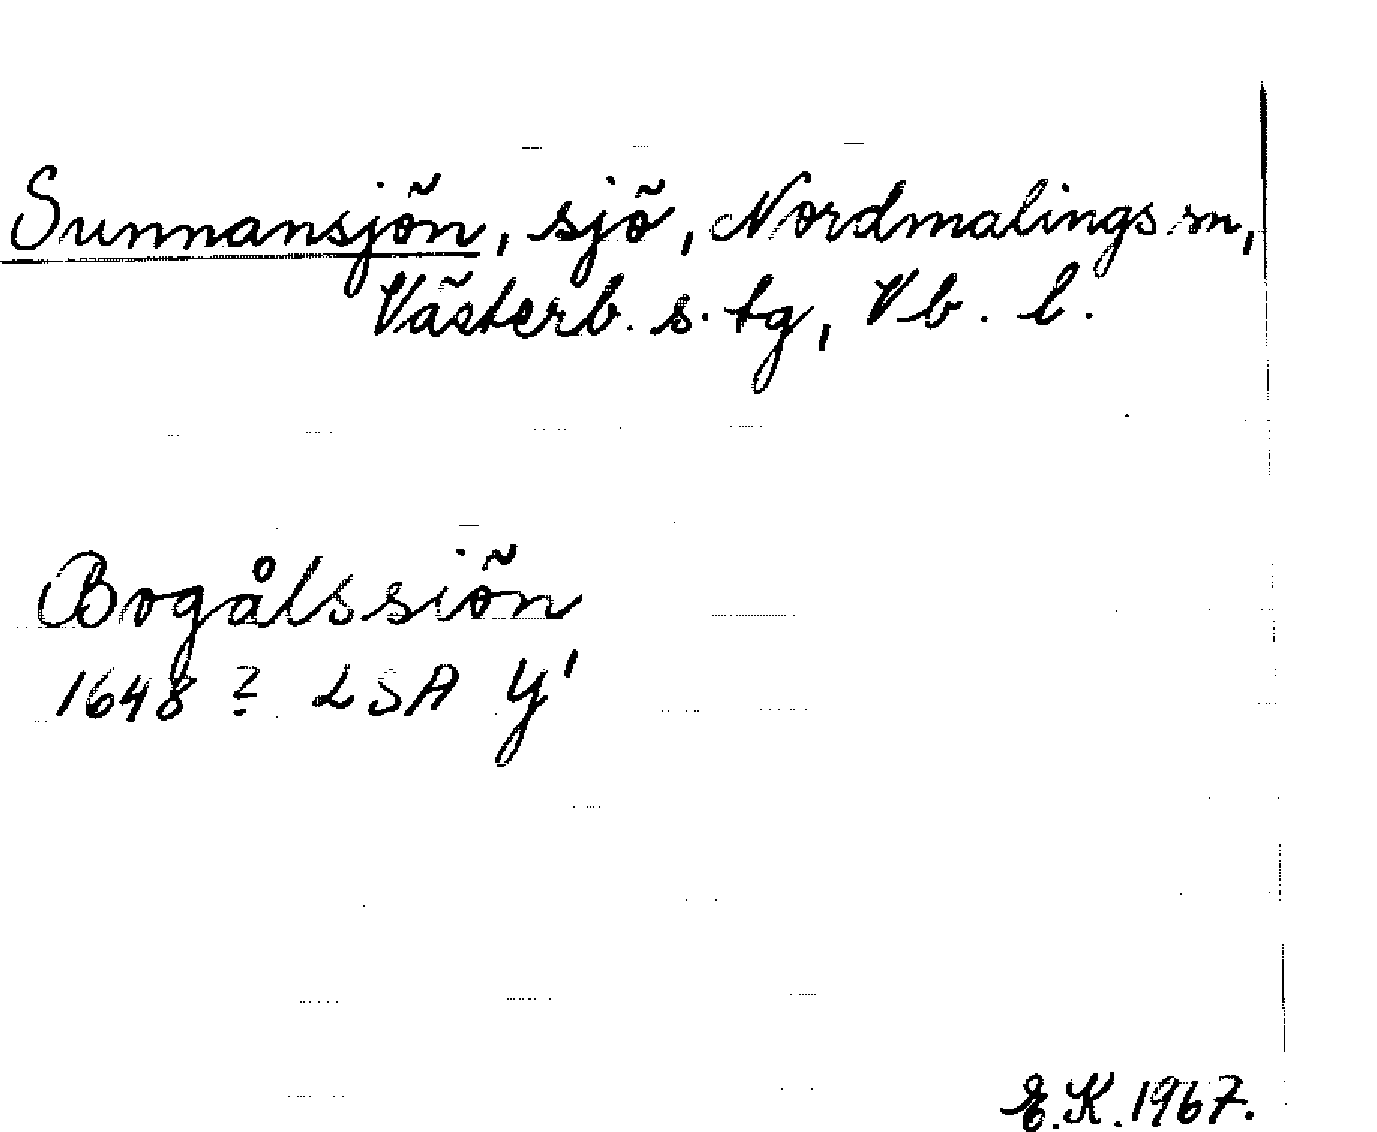 Sunnansjön, sjö, Nordmalings sn,
Västerb. s. tg, Vb. l.
Bogålssiön
1648? LSA Y'
E.K. 1967.